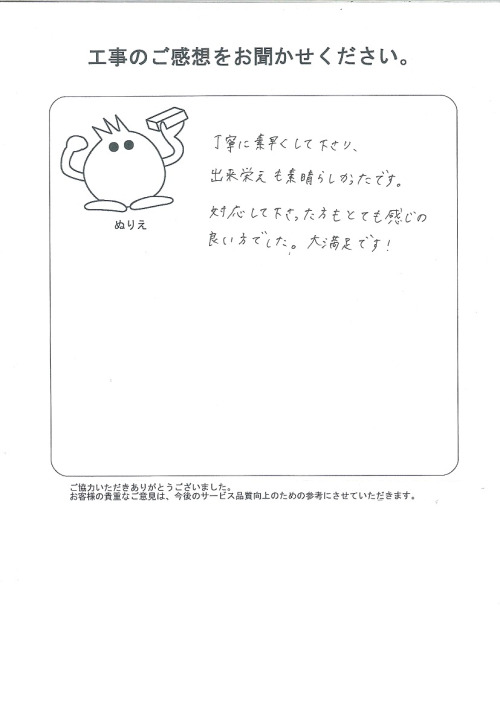 工事のご感想をお聞かせください。
丁寧に素早くして下さり、
出来栄えも素晴らしかったです。
対応して下さった方もとても感じの
良い方でした。大満足です!
ぬりえ
ご協力いただきありがとうございました。
お客様の貴重なご意見は、今後のサービス品質向上のための参考にさせていただきます。